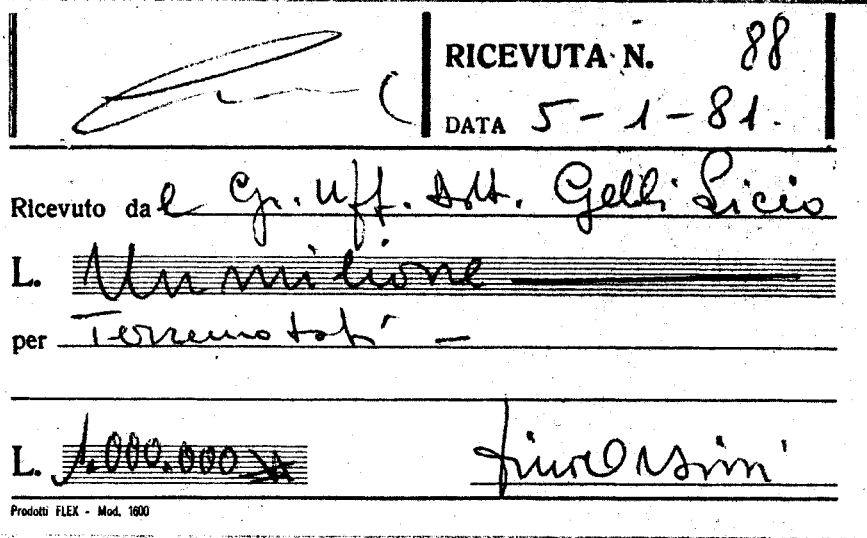 RICEVUTA N. 88
DATA 5-1-81.
Ricevuto dal Gr. Uff. Dott. Gelli Licio
L. Un milione
per Terremotati —
L. 1.000.000
Prodotti FLEX - Mod. 1600